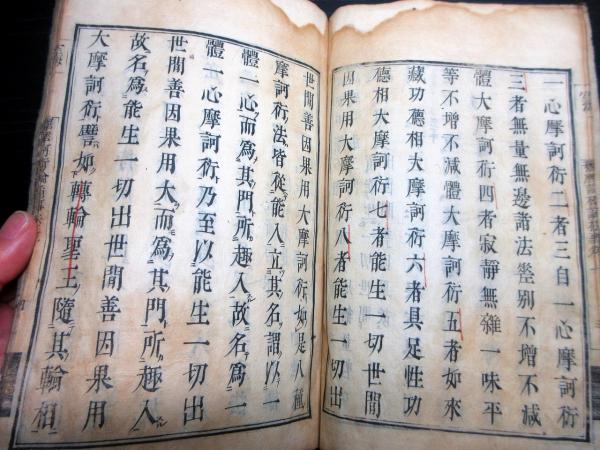 一心摩訶衍二者三自一心摩訶衍
三者無量無邊諸法差別不增不減
體大摩訶衍四者寂靜無雜一味平
等不增不減體大摩訶衍五者如來
藏功德相大摩訶衍六者具足性功
德相大摩訶衍七者能生一切世間
因果用大摩訶衍八者能生一切出
世間善因果用大摩訶衍如是八種
摩訶衍法皆從能入立其名謂以一
體一心而爲其門所趣入故名爲一
體一心摩訶衍乃至以能生一切出
世間善因果用大而爲其門所趣入
故名爲能生一切出世間善因果用
大摩訶衍譬如轉輪聖王隨其輪相